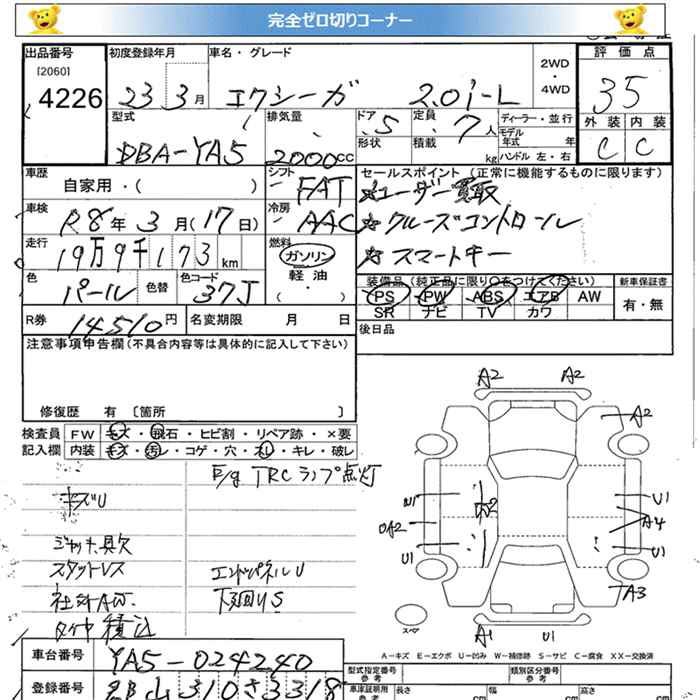 完全ゼロ切りコーナー
出品番号 初度登録年月 車名・グレード 2WD・4WD 評価点
[2060]
4226 23 3月 エクシーガ 2.0i-L 35
型式 排気量 ドア 5 定員 7人 ディーラー・並行 外装 内装
形状 積載 kg モデル年式 年 ハンドル 左・右
DBA-YA5 2000cc C C
車歴 シフト FAT セールスポイント(正常に機能するものに限ります)
自家用・( ) ☆ユーザー買取
車検 R8年3月(17日) 冷房 AAC ☆クルーズコントロール
走行 19万9千173km 燃料 ガソリン ☆スマートキー
軽油・( )
色 パール 色替 色コード 37J 装備品(純正品に限り○をつけてください) 新車保証書
PS PW ABS エアB AW 有・無
SR ナビ TV カワ
R券 14510円 名変期限 月 日 後日品
注意事項申告欄(不具合内容等は具体的に記入して下さい)
修復歴 有 〔箇所 〕
検査員 FW キズ・飛石・ヒビ割・リペア跡・×要
記入欄 内装 キズ・汚レ・コゲ・穴・スレ・キレ・破レ
E/g TRCランプ点灯
キズU
ジャッキ欠
スタットレス エンドパネルU
社外AW. 下廻りS
タイヤ積込
A2 A2
A2
U1 A2 U1
A2 A4
U1 U1
A3
スペア A1 U1
A-キズ E-エクボ U-凹み W-補修跡 S-サビ C-腐食 XX-交換済
車台番号 YA5-024240 型式指定番号 参考 類別区分番号 参考
登録番号 310さ3318 車庫証明用 参考 長さ cm 幅 cm 高さ cm